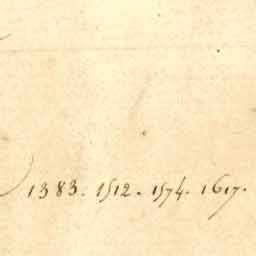 1383. 1512. 1574. 1617.